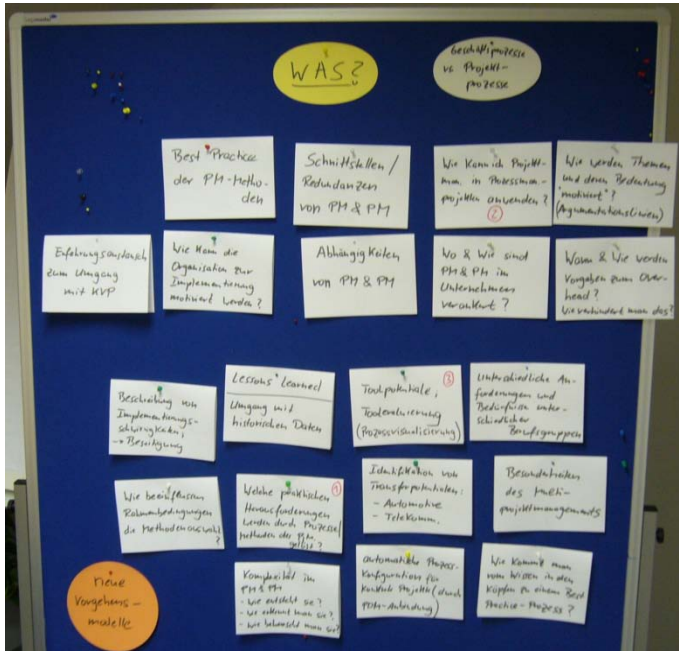 legamaster
WAS?
Geschäftsprozesse
vs Projekt-
prozesse
Best Practice
der PM-Metho-
den
Schnittstellen /
Redundanzen
von PM & PM
Wie kann ich Projekt-
man. in Prozessman-
projekten anwenden?
2
Wie werden Themen
und deren Bedeutung
"motiviert"?
(Argumentationslinien)
Erfahrungsaustausch
zum Umgang
mit KVP
Wie kann die
Organisation zur
Implementierung
motiviert werden?
Abhängigkeiten
von PM & PM
Wo & Wie sind
PM & PM im
Unternehmen
verankert?
Wann & Wie werden
Vorgaben zum Over-
head?
Wie verhindert man das?
Beschreibung von
Implementierungs-
schwierigkeiten,
→ Beseitigung
Lessons Learned
Umgang mit
historischen Daten
3
Toolpotentiale,
Toolevaluierung
(Prozessvisualisierung)
Unterschiedliche An-
forderungen und
Bedürfnisse unter-
schiedlicher
Berufsgruppen
Wie beeinflussen
Rahmenbedingungen
die Methodenauswahl
?
Welche praktischen
1
Herausforderungen
werden durch Prozesse/
Methoden des PM
gelöst?
Identifikation von
Transferpotentialen:
- Automotive
- Telekomm.
Besonderheiten
des Multi-
projektmanagements
neue
Vorgehens-
modelle
Komplexität im
PM & PM
- wie entsteht sie?
- wie erkennt man sie?
- wie beherrscht man sie?
automatische Prozess-
Konfiguration für
konkrete Projekte (durch
PDM-Anbindung)
Wie kommt man
vom Wissen in den
Köpfen zu einem Best
Practice-Prozess?